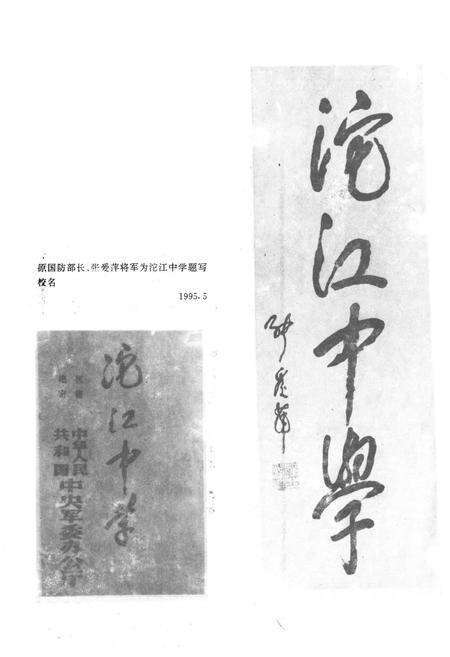 原国防部长、张爱萍将军为沱江中学题写
校名
1995.5
沱江中学
中华人民
共和国
中央军委办公厅
沱江中學
张爱萍